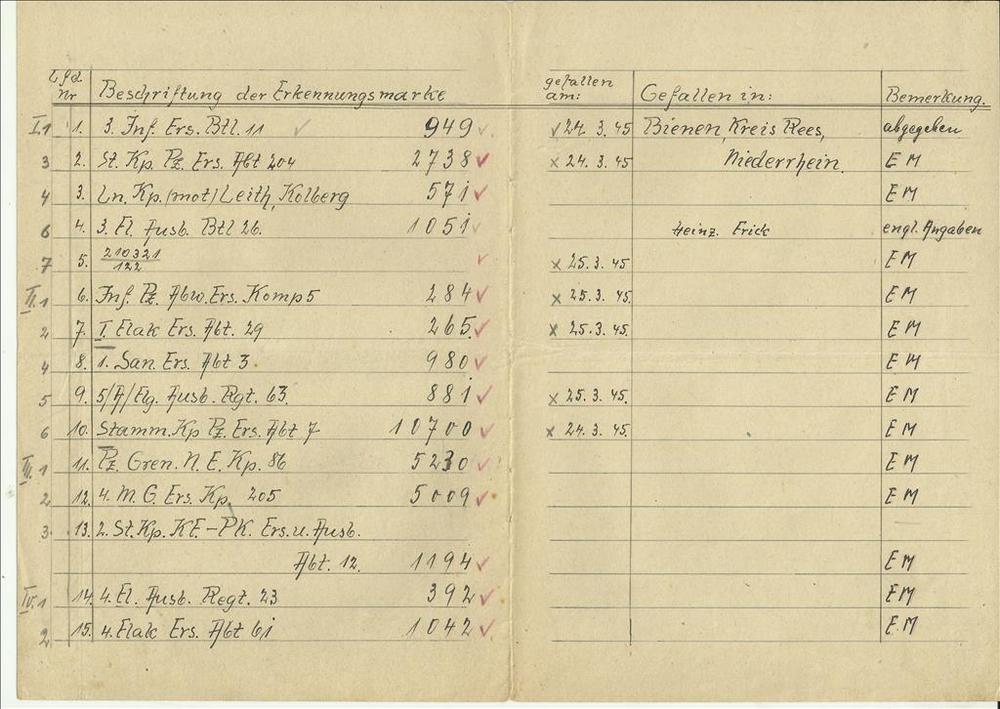 Lfd. Nr Beschriftung der Erkennungsmarke gefallen am: Gefallen in: Bemerkung.
I.1 1. 3. Inf. Ers. Btl. 11 949 24. 3. 45 Bienen, Kreis Rees, abgegeben
3 2. St. Kp. Pz. Ers. Abt 204 2738 x 24. 3. 45 Niederrhein. E M
4 3. Ln. Kp. /mot/ Leith, Kolberg 571 E M
6 4. 3. Fl. Ausb. Btl 26. 1051 Heinz. Frick engl. Angaben
7 5. 210321/122 x 25. 3. 45. E M
II.1 6. Inf. Pz. Abw. Ers. Komp 5 284 x 25. 3. 45. E M
2 7. I. Flak Ers. Abt. 29 265. x 25. 3. 45. E M
4 8. 1. San. Ers. Abt 3. 980 E M
5 9. 5/A/Flg. Ausb. Rgt. 63. 881 x 25. 3. 45. E M
6 10. Stamm. Kp Pz. Ers. Abt 7 10700 x 24. 3. 45. E M
III.1 11. Pz. Gren. N. E. Kp. 86 5230 E M
2 12. 4. M. G. Ers. Kp. 205 5009 E M
3. 13. 2. St. Kp. KE-PK. Ers. u. Ausb.
Abt. 12. 1194 E M
IV.1 14. 4. Fl. Ausb. Regt. 23 392 E M
2 15. 4. Flak Ers. Abt 61 1042 E. M